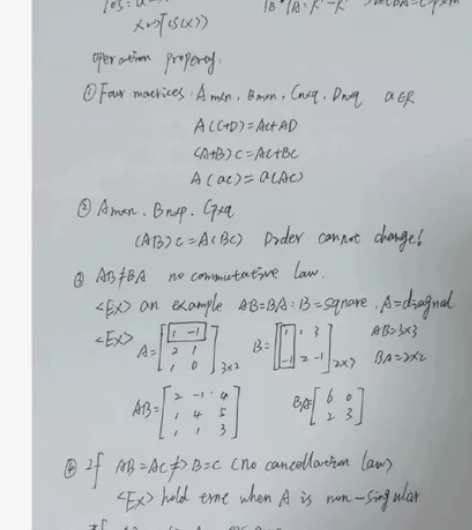 x↦T(S(x))
operation property:
① Four matrices: Amxn, Bmxn, Cnxq, Dnxq a∈R
A(C+D)=AC+AD
(A+B)C=AC+BC
A(aC)=a(AC)
② Amxn. Bnxp. Cpxq
(AB)C=A(BC) Order cannot change!
③ AB≠BA no commutative law.
<EX> an example AB=BA: B=square, A=diagnal
<EX> A=[1 -1 B=[1 1 3 AB=3x3
2 1 -1 2 -1]2x3 BA=2x2
1 0]3x2
AB=[2 -1 4 BA=[6 0
1 4 5 2 3]
1 1 3]
④ If AB=AC≠>B=C (no cancellation law)
<EX> hold true when A is non-singular